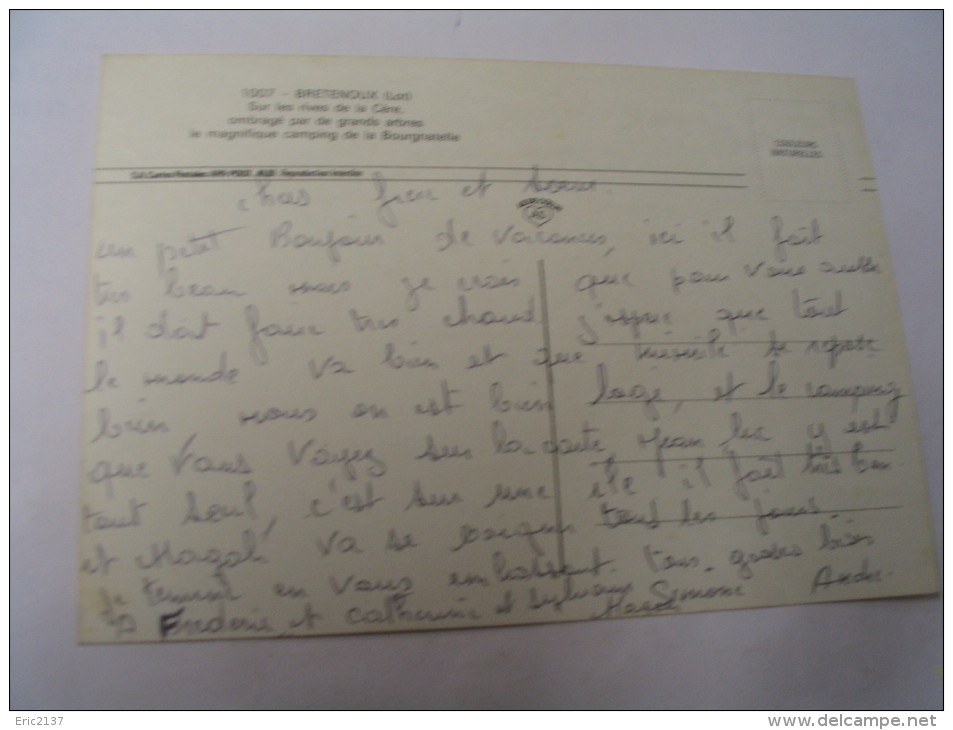 1007 - BRETENOUX (Lot)
Sur les rives de la Cère,
ombragé par de grands arbres
le magnifique camping de la Bourgnatelle
COULEURS
NATURELLES
Reproduction interdite
frere et soeur.
un petit Bonjour de vacances, ici il fait
tres beau mais je crois que pour vous aussi
il doit faire tres chaud j'espere que tout
le monde va bien et que mimile se repose
bien, nous on est bien logé, et le camping
que vous voyez sur la carte Jean luc y est
tout seul, c'est sur une ile il fait très bon
et Magali va se baigner tous les jours.
Je termine en vous embrassant tous. grosses bises
Frederic et Catherine et Sylvain Simone André
Eric2137
www.delcampe.net